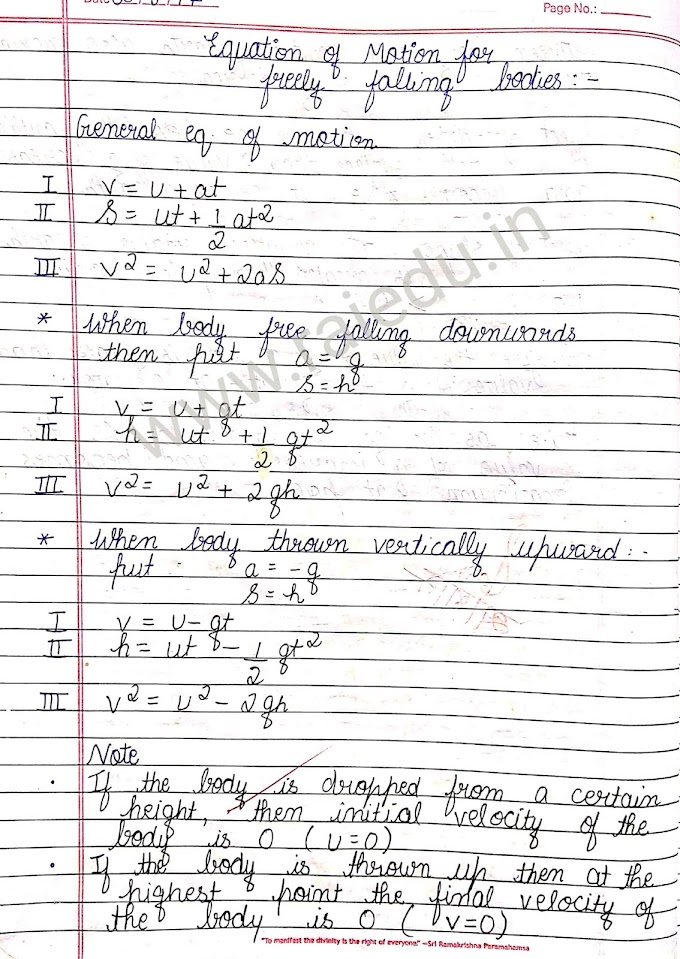 Page No.:
Equation of Motion for
freely falling bodies :-
General eq of motion
I v = u + at
II S = ut + 1/2 at2
III v2 = u2 + 2aS
* When body free falling downwards
then put a = g
S = h
I v = u + gt
II h = ut + 1/2 gt2
III v2 = u2 + 2gh
* When body thrown vertically upward :-
put a = -g
S = h
I v = u - gt
II h = ut - 1/2 gt2
III v2 = u2 - 2gh
Note
. If the body is dropped from a certain
height, then initial velocity of the
body is 0 ( u=0)
. If the body is thrown up then at the
highest point the final velocity of
the body is 0 ( v=0)
"To manifest the divinity is the right of everyone" –Sri Ramakrishna Paramahamsa
www.rajedu.in